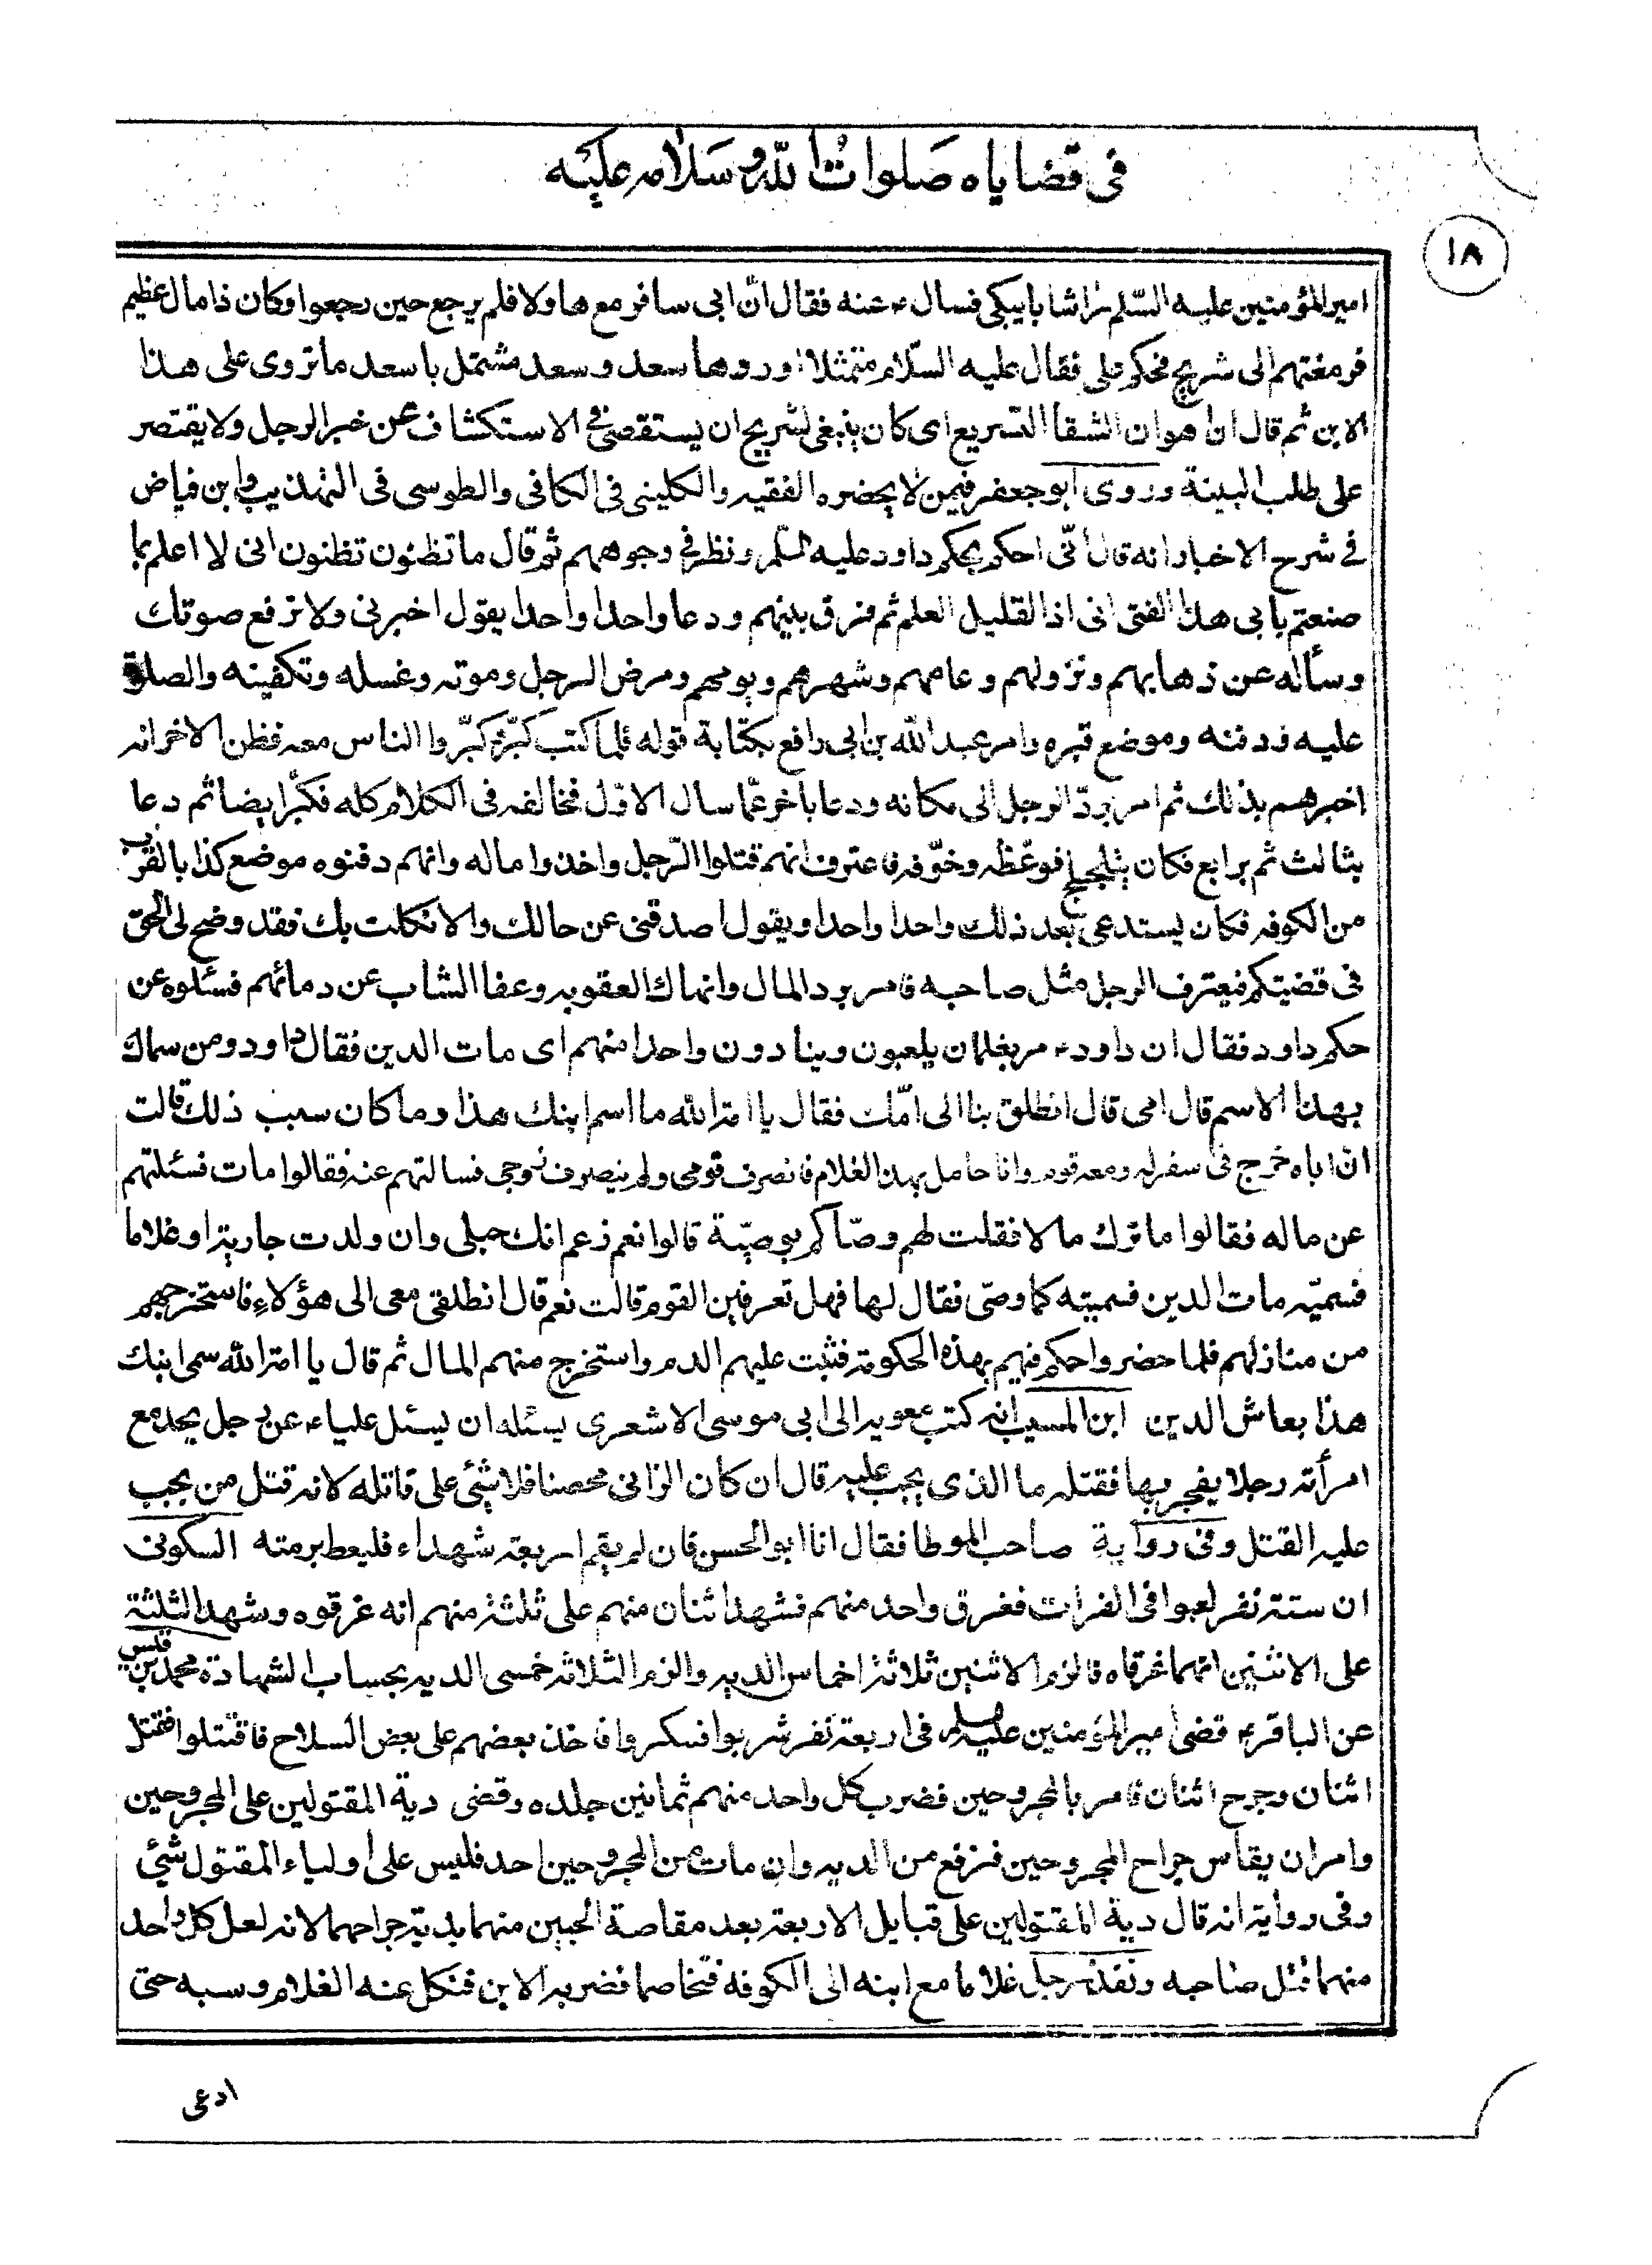 فى قضاياه صلوات الله وسلامه عليه
١٨
امير المؤمنين عليه السلم راى شابا يبكى فسال ء عنه فقال ان ابى سافر مع هاولا فلم يرجع حين رجعوا وكان ذا مال عظيم
فرفعتهم الى شريح فحكم على فقال عليه السلام متمثلا اوردها سعد وسعد مشتمل يا سعد ما تروى على هذا
الابن ثم قال ان اهون السقا التسريع اى كان ينبغى لشريح ان يستقصى فى الاستكشاف عن خبر الرجل ولا يقتصر
على طلب البينة وروى ابو جعفر فيمن لا يحضره الفقيه والكلينى فى الكافى والطوسى فى التهذيب وابن فياض
فى شرح الاخبار انه قال انى احكم بحكم داود عليه السلم ونظر فى وجوههم ثم قال ما تظنون تظنون انى لا اعلم بما
صنعتم بابى هذا الفتى انى اذا لقليل العلم ثم فرق بينهم ودعا واحدا واحدا يقول اخبرنى ولا ترفع صوتك
وسأله عن ذهابهم ونزولهم وعامهم وشهرهم ويومهم ومرض الرجل وموته وغسله وتكفينه والصلوة
عليه ودفنه وموضع قبره وامر عبد الله بن ابى رافع بكتابة قوله فلما كتب كبر ثم كبروا الناس معه فظن الاخر انه
اخبرهم بذلك ثم امر برد الرجل الى مكانه ودعا باخر عما سال الاول فخالفه فى الكلام كله فكبر ايضا ثم دعا
بثالث ثم برابع فكان يتلجلج فوعظه وخوفه فاعترف انهم قتلوا الرجل واخذوا ماله وانهم دفنوه موضع كذا بالقرب
من الكوفه فكان يستدعى بعد ذلك واحدا واحدا ويقول اصدقنى عن حالك والا نكلت بك فقد وضح لى الحق
فى قضيتكم فيعترف الرجل مثل صاحبه فامر برد المال وانهاك العقوبه وعفا الشاب عن دمائهم فسئلوه عن
حكم داود فقال ان داود ء مر بغلمان يلعبون وينادون واحدا منهم اى مات الدين فقال داود ومن سماك
بهذا الاسم قال امى قال انطلق بنا الى امك فقال يا امة الله ما اسم ابنك هذا وما كان سبب ذلك قالت
ان اباه خرج فى سفر له ومعه قوم وانا حامل بهذا الغلام فانصرف قومى ولم ينصرف زوجى فسالتهم عنه فقالوا مات فسئلتهم
عن ماله فقالوا ما ترك مالا فقلت لهم وصاكم بوصية قالوا نعم زعم انك حبلى وان ولدت جارية او غلاما
فسميه مات الدين فسميته كما وصى فقال لها فهل تعرفين القوم قالت نعم قال انطلقى معى الى هؤلاء فاستخرجهم
من منازلهم فلما حضروا حكم فيهم بهذه الحكومة فثبت عليهم الدم واستخرج منهم المال ثم قال يا امة الله سمى ابنك
هذا بعاش الدين ابن المسيب انه كتب معويه الى ابى موسى الاشعرى يسئله ان يسئل عليا ء عن رجل يجد مع
امرأته رجلا يفجر بها فقتله ما الذى يجب عليه قال ان كان الزانى محصنا فلا شئى على قاتله لانه قتل من يجب
عليه القتل وفى رواية صاحب الموطا فقال انا ابو الحسن فان لم يقم اربعة شهداء فليعط برمته السكونى
ان ستة نفر لعبوا فى الفرات فغرق واحد منهم فشهد اثنان منهم على ثلثة منهم انه غرقوه وشهد الثلثة
على الاثنين انهما غرقاه فالزم الاثنين ثلاثة اخماس الديه والزم الثلاثه خمسى الديه بحساب الشهادة محمد بن قيس
عن الباقر ء قضى امير المؤمنين عليه السلم فى اربعة نفر شربوا فسكروا فاخذ بعضهم على بعض السلاح فاقتتلوا فقتل
اثنان وجرح اثنان فامر بالمجروحين فضرب كل واحد منهم ثمانين جلده وقضى دية المقتولين على المجروحين
وامر ان يقاس جراح المجروحين فترفع من الديه وان مات من المجروحين احد فليس على اولياء المقتول شئى
وفى رواية انه قال دية المقتولين على قبايل الاربعة بعد مقاصة الحيين منهما بدية جراحهما لانه لعل كل واحد
منهما قتل صاحبه ونفذ رجل غلاما مع ابنه الى الكوفه فتخاصما فضربه الابن فنكل عنه الغلام وسبه حتى
ادعى